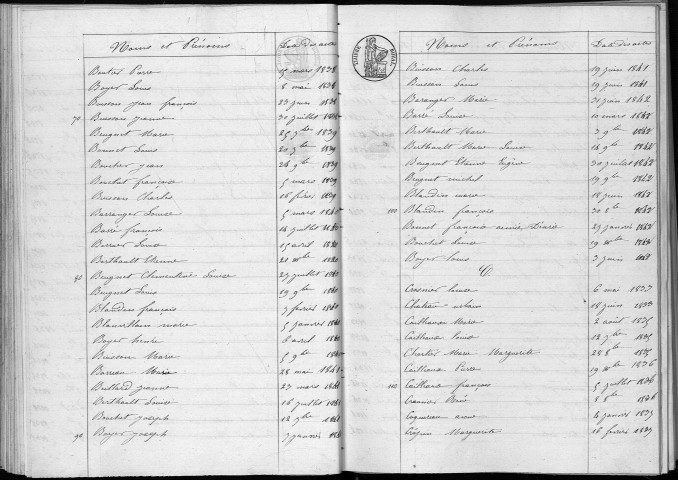 Noms et Prénoms Date des actes
Boutat Pierre 15 mars 1838
Boyer Louis 8 mai 1838
Buisson jean françois 23 juin 1838
70 Buisson jeanne 30 juillet
Beugnet Marie 25 7bre 1839
Bonnet Louis 20 9bre 1839
Bourbier jean 26 9bre 1839
Bouchet françois 5 mars 1839
Buisson Charles 16 février 1839
Barranger Louise 5 mars 1840
Barré françois 16 juillet 1840
Bernier Louis 15 avril 1840
Berthault Etienne 21 Xbre 1840
80 Beugnet Clementine Louise 27 juillet 1840
Beugnet Louis 19 9bre 1840
Blandin françois 3 février 1840
marie 5 janvier 1840
Boyer 6 avril 1840
Buisson Marie 5 9bre 1840
Barreau Marie 28 mai 1841
Bullard jeanne 23 mars 1841
Berthault Louise 16 juillet 1841
Bouchet joseph 18 9bre 1841
90 Boyer joseph 7 janvier
Noms et Prénoms Date des actes
TIMBRE ROYAL
Buisson Charles 19 juin 1841
Buisson Louis 19 juin 1841
Baranger Marie 21 juin 1842
Barré Louise 10 mars 1842
Berthault Marie 3 9bre 1842
Berthault Marie Louise 16 9bre 1842
Beugnet Etienne Eugène 30 juillet 1842
Beugnet michel 19 9bre 1842
Blandin marie 18 juin 1842
100 Blandin françois 20 8bre 1842
Bonnet françois aimée Désirée 29 janvier 1842
Bouchet Louis 19 Xbre 1842
Boyer louis 3 juin
C
Crosnier louise 6 mai 1833
Chateau urbain 18 juin 1833
Cailleaux Marie 2 août 1835
Cailleaux louise 12 7bre 1835
Chartier Marie Marguerite 28 8bre 1835
Cailleaux Pierre 19 Xbre 1836
Cailleaux françois 5 juillet 1836
René 8 8bre 1836
6 janvier 1839
Crépin Marguerite 16 février 1839